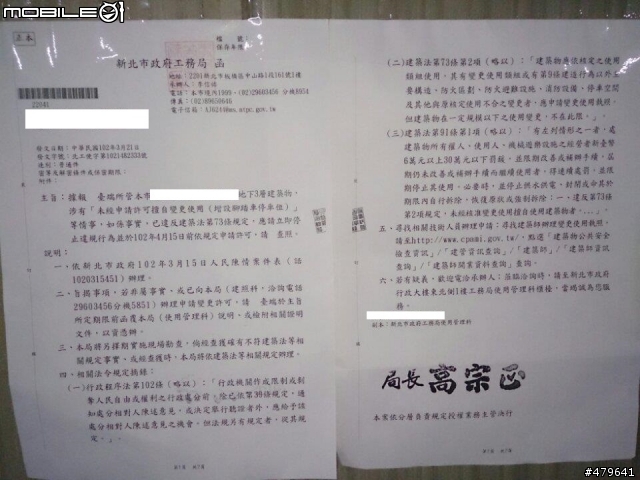 MOBILE01
正本
檔　號：
保存年限：
新北市政府工務局 函
地址：22001新北市板橋區中山路1段161號5樓
電話：本市境內1999、(02)29603456 分機8954
傳真：(02)89650646
22041
發文日期：中華民國102年3月21日
發文字號：北工使字第1021482333號
速別：普通件
密等及解密條件或保密期限：
附件：
主旨：據報 臺端所管本市
地下3層建築物，
涉有「未經申請許可擅自變更使用(增設腳踏車停車位)」
等情事，如係實寧，已違反建築法第73條規定，應請立即停
止違規行為並於102年4月15日前依規定申請許可，請 查照。
說明：
一、依新北市政府102年3月15日人民陳情案件表(話
1020315451)辦理。
二、旨揭事項，若非屬事實，或已向本局(建照科，洽詢電話
29603456分機5851)辦理申請變更許可，請 臺端於主旨
所定期限前函覆本局(使用管理科)說明，或檢附相關證明
文件，以資憑辦。
三、本局將另擇期實施現場勘查，倘經查獲確有不符建築法等相
關規定事實，或經查獲時，本局將依建築法等相關規定辦理。
四、相關法令規定摘錄：
(一)行政程序法第102條(略以)：「行政機關作成限制或剝
奪人民自由或權利之行政處分前，除已依第39條規定，通
知處分相對人陳述意見，或決定舉行聽證者外，應給予該
處分相對人陳述意見之機會。但法規另有規定者，從其規
定。」。
第1頁 共2頁
(二)建築法第73條第2項(略以)：「建築物應依核定之使用
類組使用，其有變更使用類組或有第9條建造行為以外主
要構造、防火區劃、防火避難設施、消防設備、停車空間
及其他與原核定使用不合之變更者，應申請變更使用執照。
但建築物在一定規模以下之使用變更，不在此限。」
(三)建築法第91條第1項(略以)：「有左列情形之一者，處
建築物所有權人、使用人、機械遊樂設施之經營者新臺幣
6萬元以上30萬元以下罰鍰，並限期改善或補辦手續，屆
期仍未改善或補辦手續而繼續使用者，得連續處罰，並限
期停止其使用。必要時，並停止供水供電、封閉或命其於
期限內自行拆除，恢復原狀或強制拆除：一、違反第73條
第2項規定，未經核准變更使用擅自使用建築物者。...」。
五、尋找相關技術人員辦理申請：尋找建築師辦理變更使用執照，
請至http://www.cpami.gov.tw/，點選「建築物公共安全
檢查資訊」/「建管資訊查詢」/「建築師」/「建築師資訊
查詢」/「建築師開業資料查詢」查詢。
六、若有疑義，歡迎電洽承辦人；蒞臨洽詢時，請至新北市政府
行政大樓東北側1樓工務局使用管理科櫃檯，當竭誠為您服
務。
副本：新北市政府工務局使用管理科
局長 高宗正
本案依分層負責規定授權業務主管決行
第2頁 共2頁
#479641